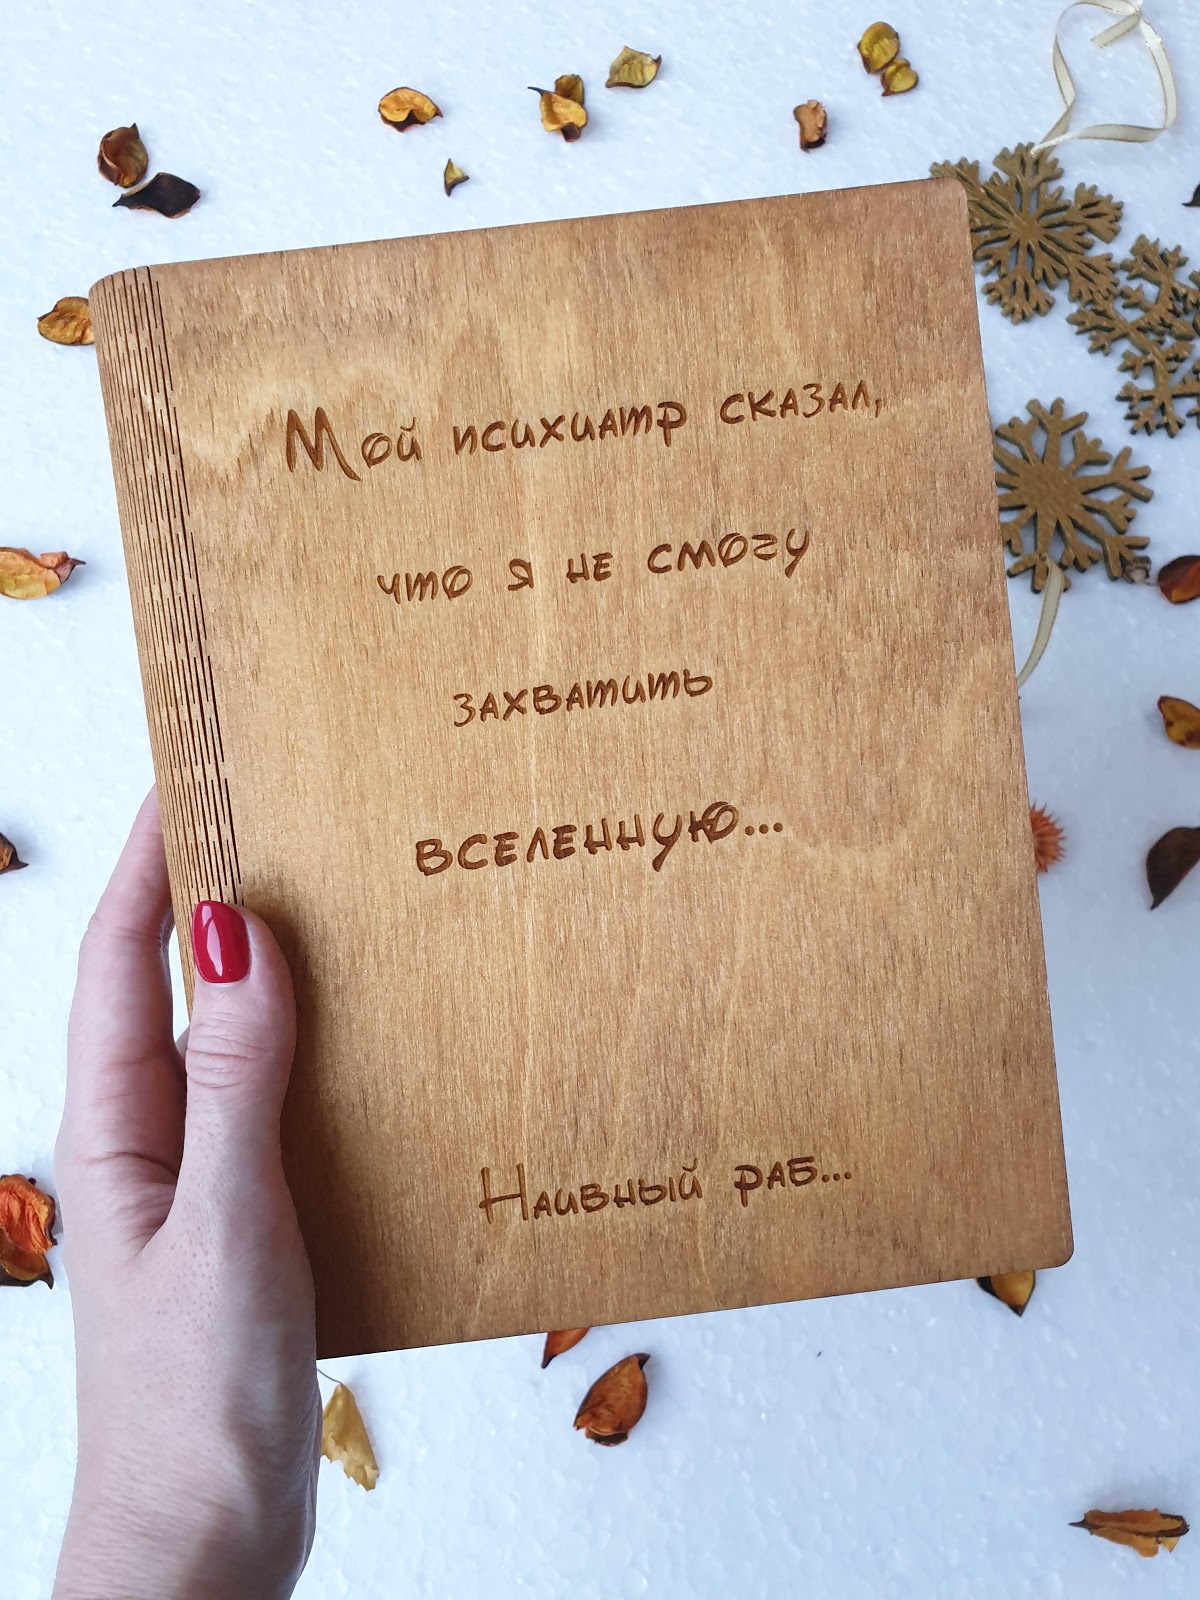 Мой психиатр сказал,
что я не смогу
захватить
вселенную...
Наивный раб...